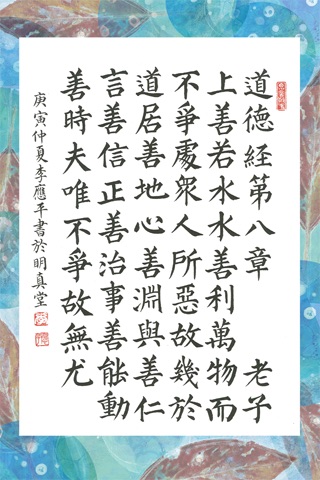 道德經第八章 老子
上善若水水善利萬物而
不爭處眾人所惡故幾於
道居善地心善淵與善仁
言善信正善治事善能動
善時夫唯不爭故無尤
庚寅仲夏李應平書於明真堂